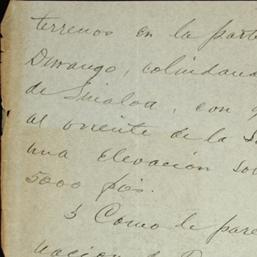 terrenos en la parte
Durango, colindan
de Sinaloa, con
al oriente de la S
una elevacion so
5000 piés.
5 Como de pare